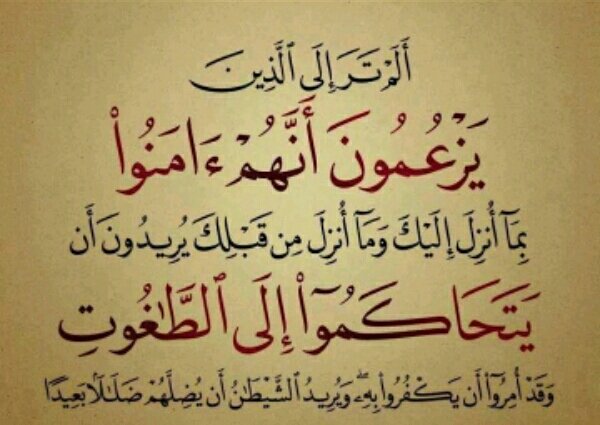 أَلَمْ تَرَ إِلَى ٱلَّذِينَ
يَزْعُمُونَ أَنَّهُمْ ءَامَنُوا۟
بِمَآ أُنزِلَ إِلَيْكَ وَمَآ أُنزِلَ مِن قَبْلِكَ يُرِيدُونَ أَن
يَتَحَاكَمُوٓا۟ إِلَى ٱلطَّـٰغُوتِ
وَقَدْ أُمِرُوٓا۟ أَن يَكْفُرُوا۟ بِهِۦۖ وَيُرِيدُ ٱلشَّيْطَـٰنُ أَن يُضِلَّهُمْ ضَلَـٰلًۢا بَعِيدًا